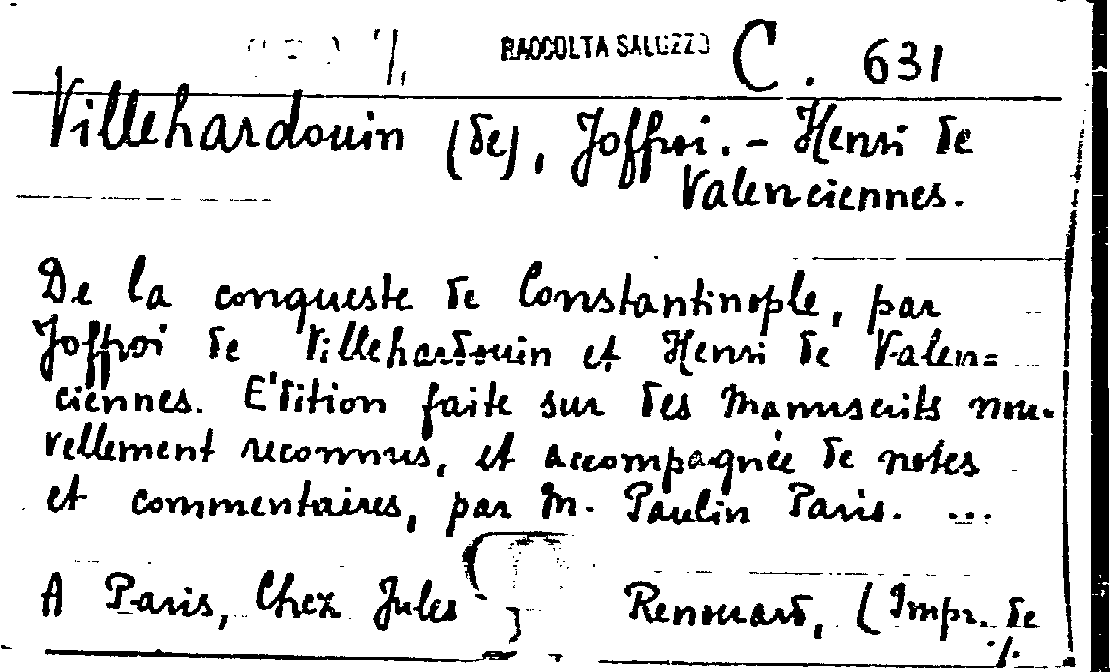 ./. RACCOLTA SALUZZO C. 631
Villehardouin (de), Joffroi. - Henri de
Valenciennes.
De la conqueste de Constantinople, par
Joffroi de Villehardouin et Henri de Valen=
ciennes. E'dition faite sur des Manuscrits nou-
vellement reconnus, et accompagnée de notes
et commentaires, par M. Paulin Paris. ...
A Paris, Chez Jules Renouard, (Impr. de
./.